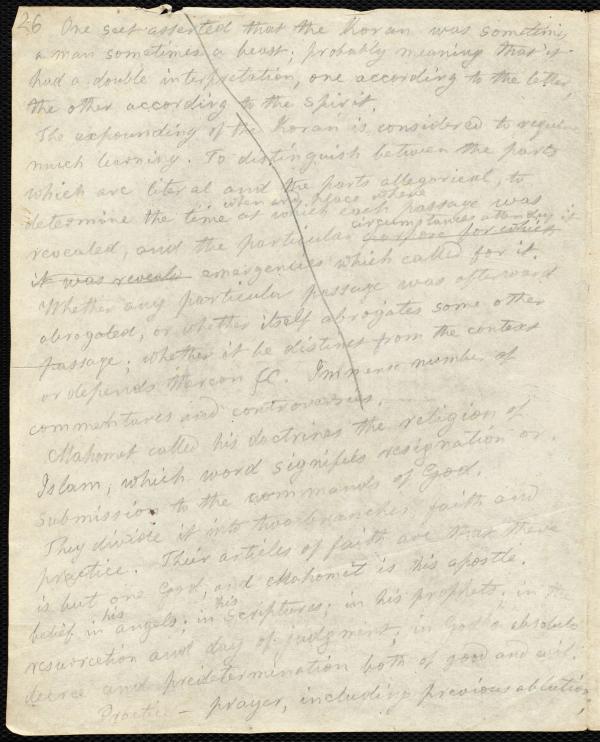 26 One sect asserted that the Koran was sometimes
a man sometimes a beast; probably meaning that it
had a double interpretation, one according to the letter,
the other according to the spirit.
The expounding of the Koran is considered to require
much learning. To distinguish between the parts
which are literal and the parts allegorical, to
when any place where
determine the time at which each passage was
circumstances attending it
revealed, and the particular purpose for which
it was reveald emergencies which called for it.
Whether any particular passage was afterward
abrogated, or whether itself abrogates some other
passage; whether it be distinct from the context
or depends thereon &c. Immense number of
commentaries and controversies.
Mahomet called his doctrines the religion of
Islam, which word signifies resignation or
submission to the commands of God.
They divide it into two branches, faith and
practice. Their articles of faith are that there
is but one God, and Mahomet is his apostle.
his his
belief in angels; in Scriptures; in his prophets; in the
resurrection and day of judgment, in God's absolute
decree and predetermination both of good and evil.
Practice - prayer, including previous ablution